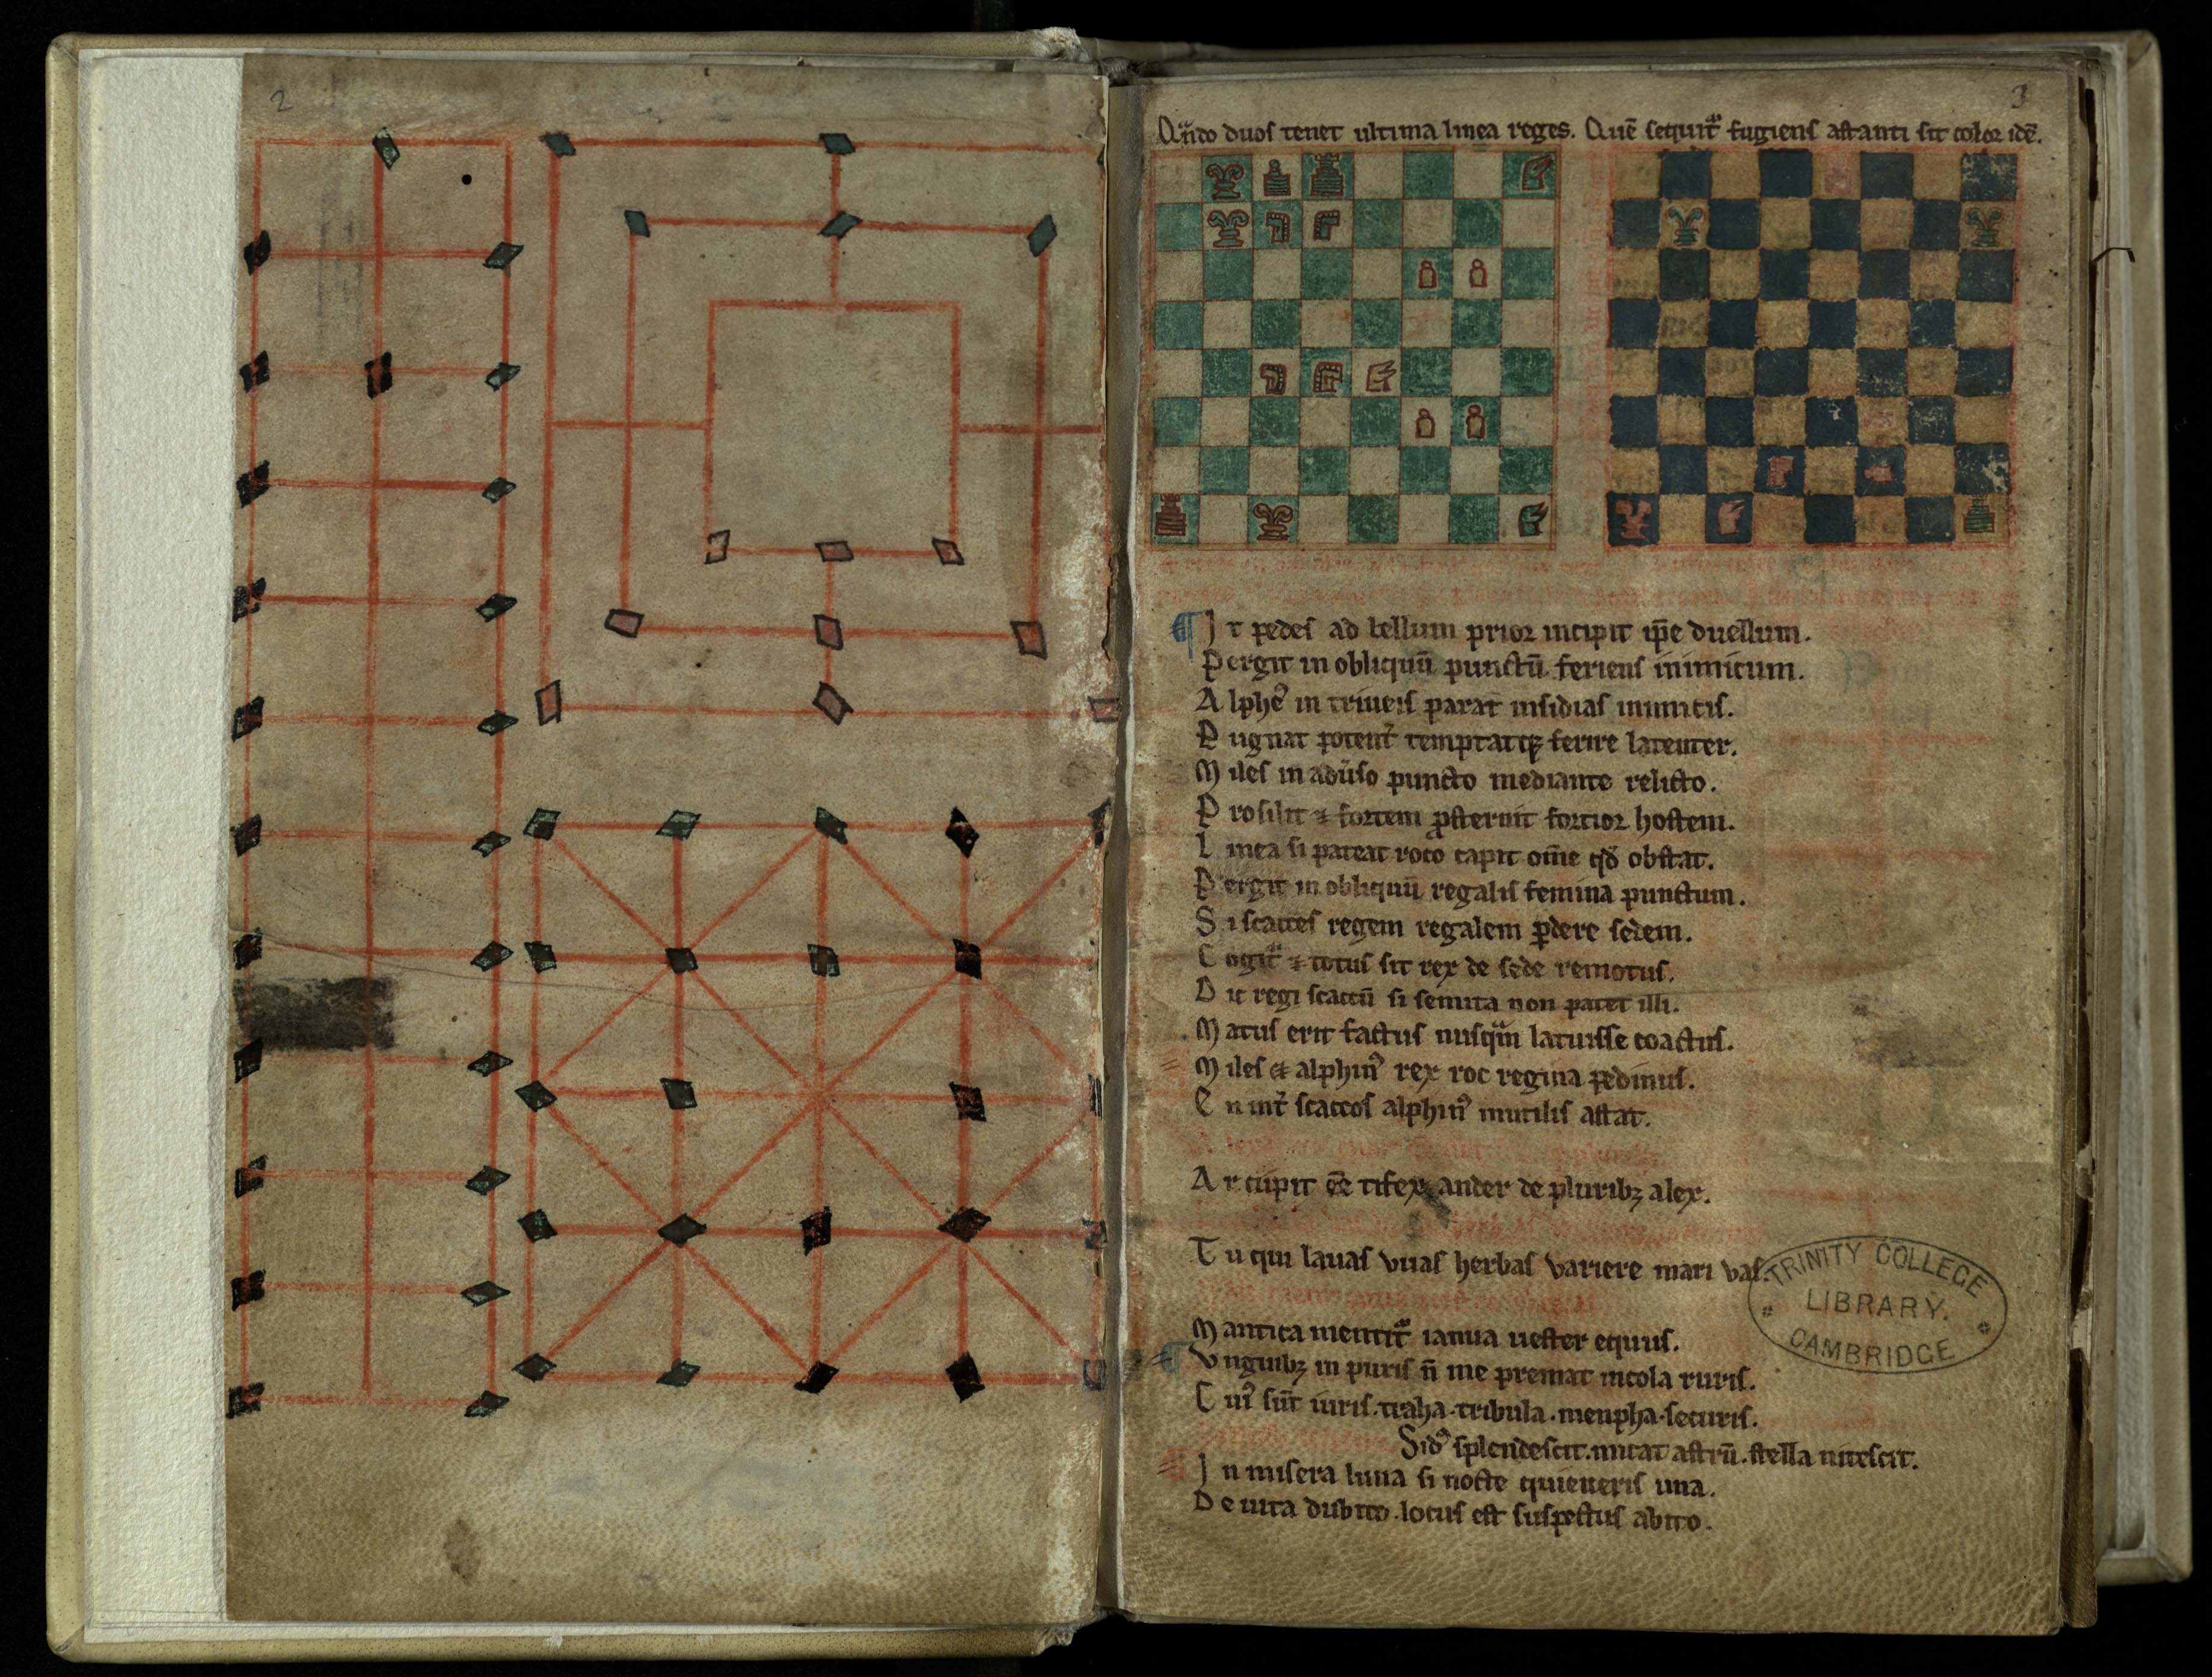 2
3
Qͣndo duos tenet ultima linea reges. Quē sequitͣ fugiens astanti sit color idē.
It pedes ad bellum prior incipit ip̄e duellum.
Pergit in obliquū punctū feriens inimicum.
Alphe᷒ in triueis parat insidias inimicis.
Pugnat potent᷑ temptatq; ferire latenter.
Miles in adūso puncto mediante relicto.
Prosilit ⁊ fortem ꝓsternit fortior hostem.
Linea si pateat roco capit om̄e qđ obstat.
Pergit in obliquū regalis femina punctum.
Si scacces regem regalem ꝑdere sedem.
Cogitͣ ⁊ totus sit rex de sede remotus.
Dic regi scaccū si semita non patet illi.
Matus erit factus nusqͣm latuisse coactus.
Miles & alphin᷒ rex roc regina pedinus.
En int᷑ scaccos alphin᷒ inutilis astat.
Ar cupit eē tifex ander de plurib; alex.
Tu qui lauas vuas herbas variere mari vas.
Mantica mentitͣ ianua uester equus.
Vnguib; in puris n̄ me premat incola ruris.
Cui᷒ sūt iuris. traha. tribula. menpha. securis.
Sid᷒ splendescit. micat astrū. stella nitescit.
In misera luna si nocte quieueris una.
De uita dubito. locus est suspectus abito.
TRINITY COLLEGE
LIBRARY.
CAMBRIDGE